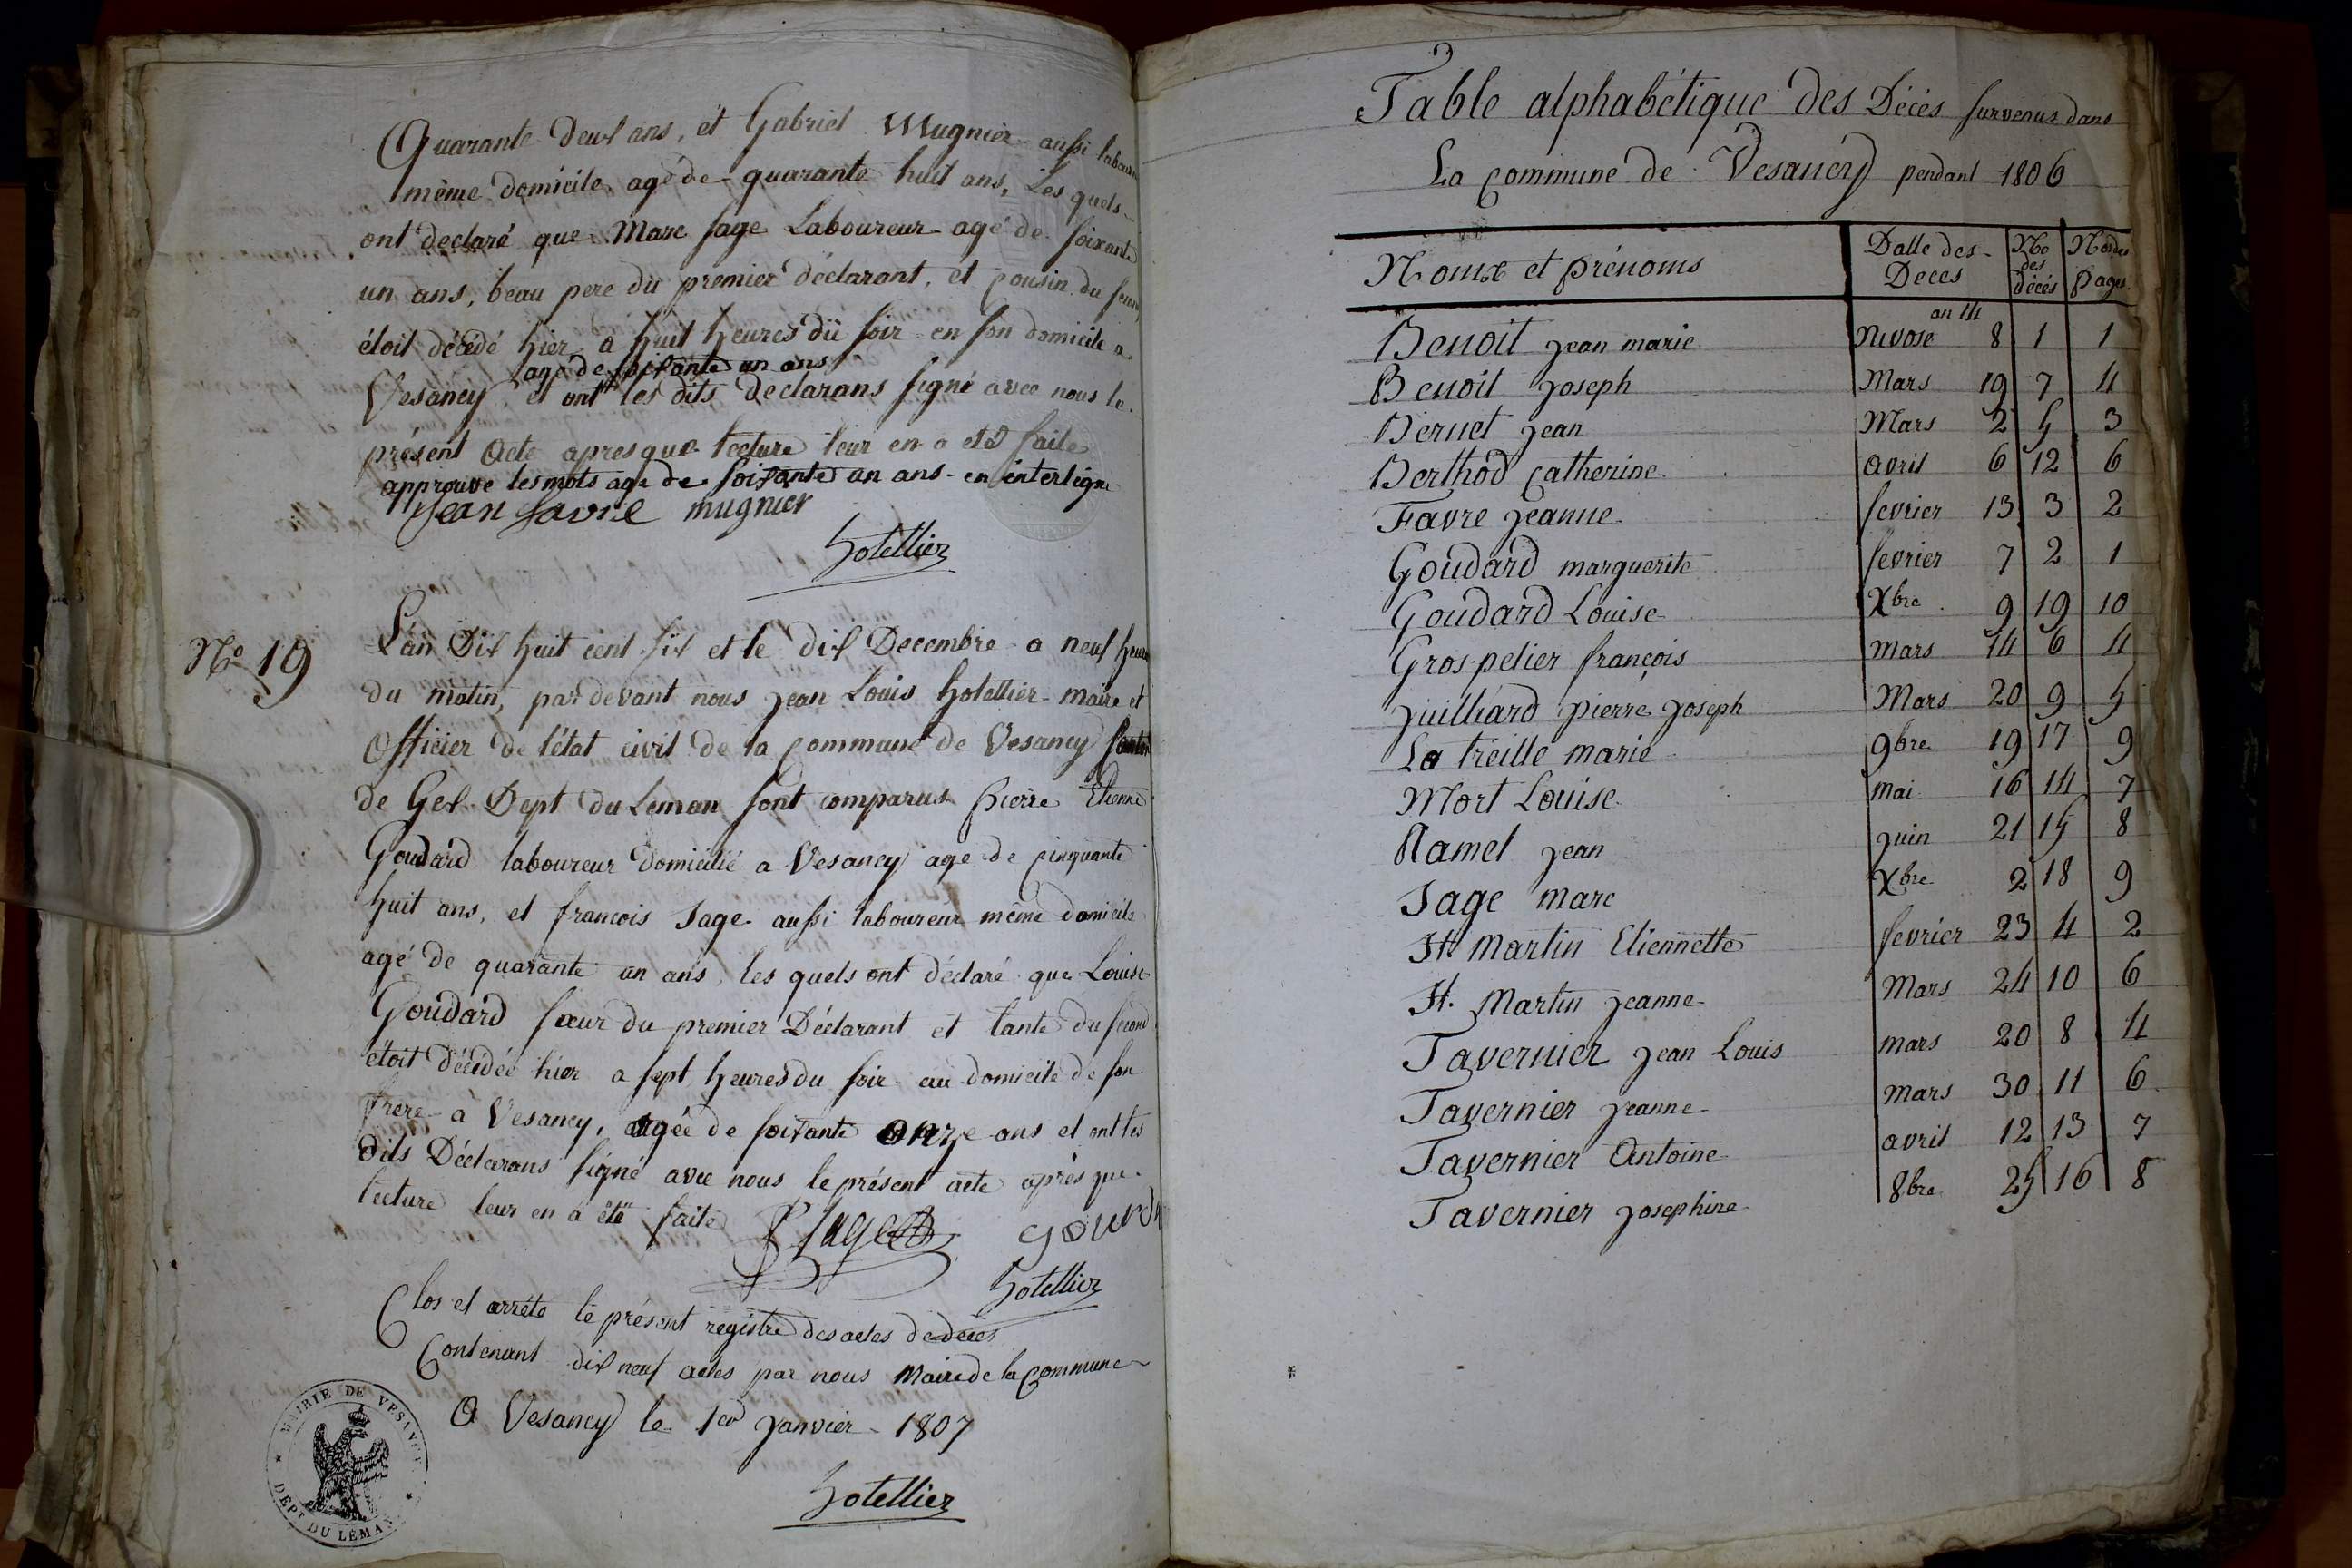 Quarante deux ans, et Gabriel Mugnier aussi
même domicile agé de quarante huit ans, Les quels
ont declaré que Marc sage Laboureur agé de soixante
un ans, beau pere du premier déclarant, et Cousin du
étoit décédé hier a huit heures du soir en son domicile a
agé de soixante un ans
Vesancy et ont les dits declarans signé avec nous le
présent acte apres que lecture leur en a eté faite
approuvé les mots agé de soixante un ans en interligne
Jean favre mugnier
hotellier
No 19
L'an Dix huit cent six et le dix Decembre a neuf heures
du matin, par devant nous jean Louis hotellier maire et
Officier de l'état civil de la Commune de Vesancy Canton
de Gex Dept du Leman sont comparus pierre Etienne
Goudard laboureur domicilié a Vesancy agé de cinquante
huit ans, et francois Sage aussi laboureur même domicile
agé de quarante un ans, les quels ont déclaré que Louise
Goudard sœur du premier Déclarant et tante du second
étoit décédée hier a sept heures du soir au domicile de son
frere a Vesancy, agée de soixante onze ans et ont les
dits Déclarans signé avec nous le présent acte après que
lecture leur en a été faite f sage
hotellier
Clos et arrété le présent registre des actes de deces
Contenant dix neuf actes par nous Maire de la Commune
A Vesancy le 1er Janvier 1807
hotellier
MAIRIE DE VESANCY
DEPT DU LEMAN
Table alphabétique des Décès survenus dans
La Commune de Vesancy pendant 1806
Noms et prénoms Datte des Deces No des décés Nos des pages
an 14
Benoit jean marie Nivose 8 1 1
Benoit joseph Mars 19 7 4
Bernet jean Mars 2 5 3
Berthod Catherine avril 6 12 6
Favre jeanne fevrier 13 3 2
Goudard marguerite fevrier 7 2 1
Goudard Louise Xbre 9 19 10
Gros-pelier françois mars 14 6 4
Juilliard pierre joseph Mars 20 9 5
La treille marie 9bre 19 17 9
Mort Louise mai 16 14 7
Ramel jean juin 21 15 8
Sage marc Xbre 2 18 9
St Martin Etiennette fevrier 23 4 2
St. Martin jeanne Mars 24 10 6
Tavernier jean Louis mars 20 8 4
Tavernier jeanne mars 30 11 6
Tavernier Antoine avril 12 13 7
Tavernier josephine 8bre 25 16 8